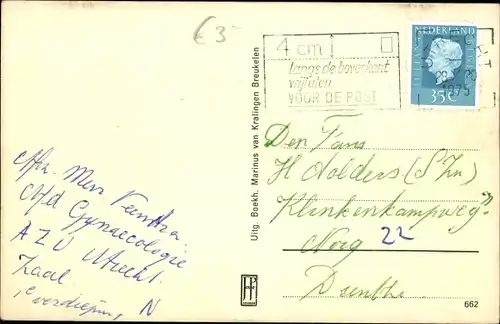 £ 3-
4 cm
langs de bovenkant
vrijlaten
VOOR DE POST
NEDERLAND
35c
1975
Uitg. Boekh. Marinus van Kralingen Breukelen
Den Fam
H Nolders (S Zn)
Klinkenkampweg
22
Norg
Drenthe
Afz. Mevr Veenstra
Afd Gynaecologie
AZU Utrecht
Zaal
verdieping N
662